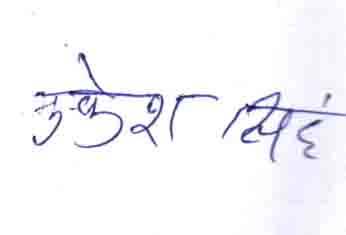 मुकेश सिंह